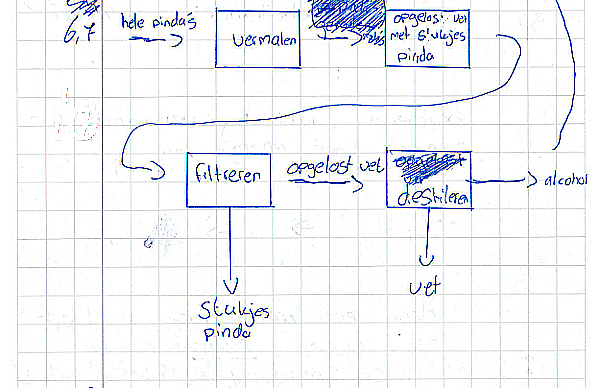 6,7
hele pinda's
vermalen
opgelost vet
met stukjes
pinda
filtreren
opgelost vet
destileren
alcohol
stukjes
pinda
vet